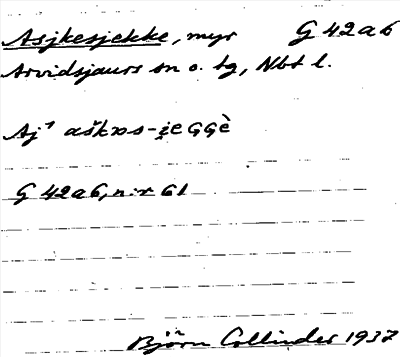 Asjkesjekke, myr G 42 a 6
Arvidsjaurs sn o. tg, Nbt l.
Aj¹
G 42 a 6, nr 61
Björn Collinder 1937